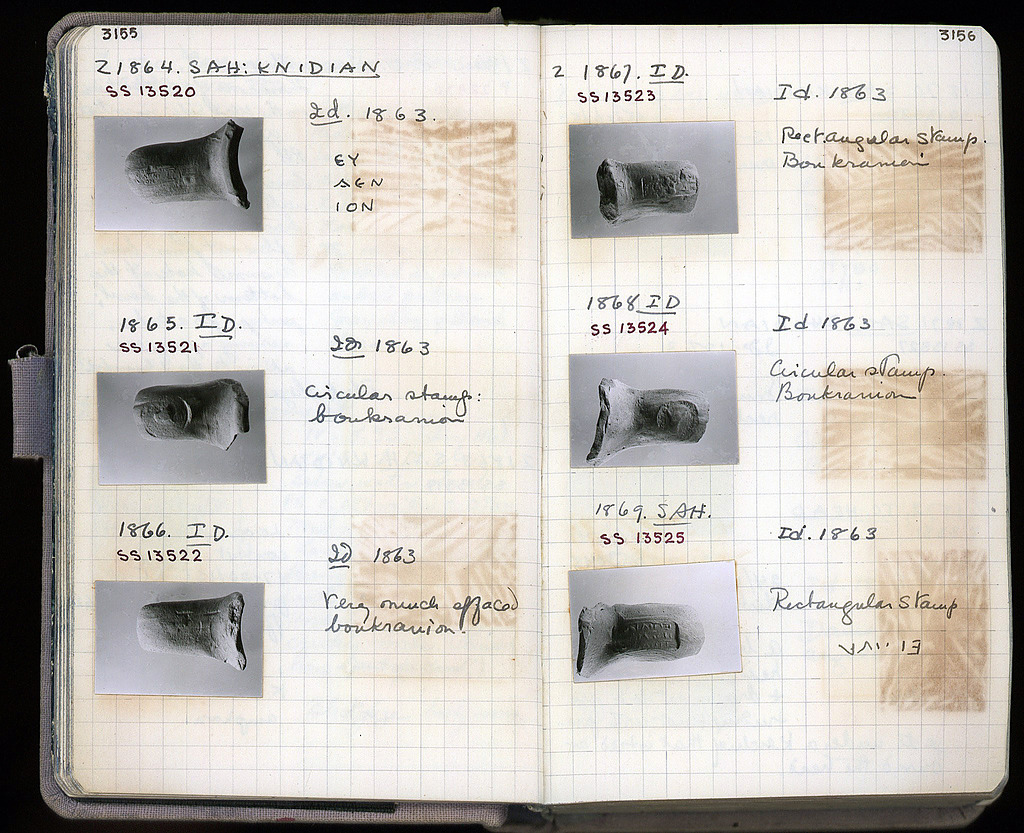 3155
Z 1864. SAH: KNIDIAN
SS 13520
Id. 1863.
EY
AGN
ION
1865. ID.
SS 13521
Id 1863
Circular stamp:
boukranion
1866. ID.
SS 13522
Id 1863
Very much effaced
boukranion.
3156
Z 1867. ID.
SS 13523
Id. 1863
Rectangular stamp.
Boukranion
1868 ID
SS 13524
Id 1863
Circular stamp.
Boukranion
1869. SAH.
SS 13525
Id. 1863
Rectangular stamp